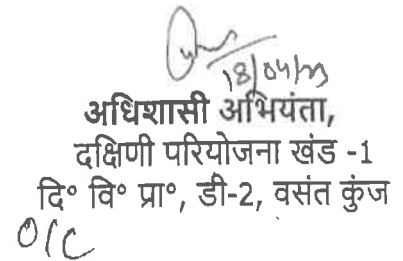 18/04/23
अधिशासी अभियंता,
दक्षिणी परियोजना खंड -1
दि॰ वि॰ प्रा॰, डी-2, वसंत कुंज
O/C